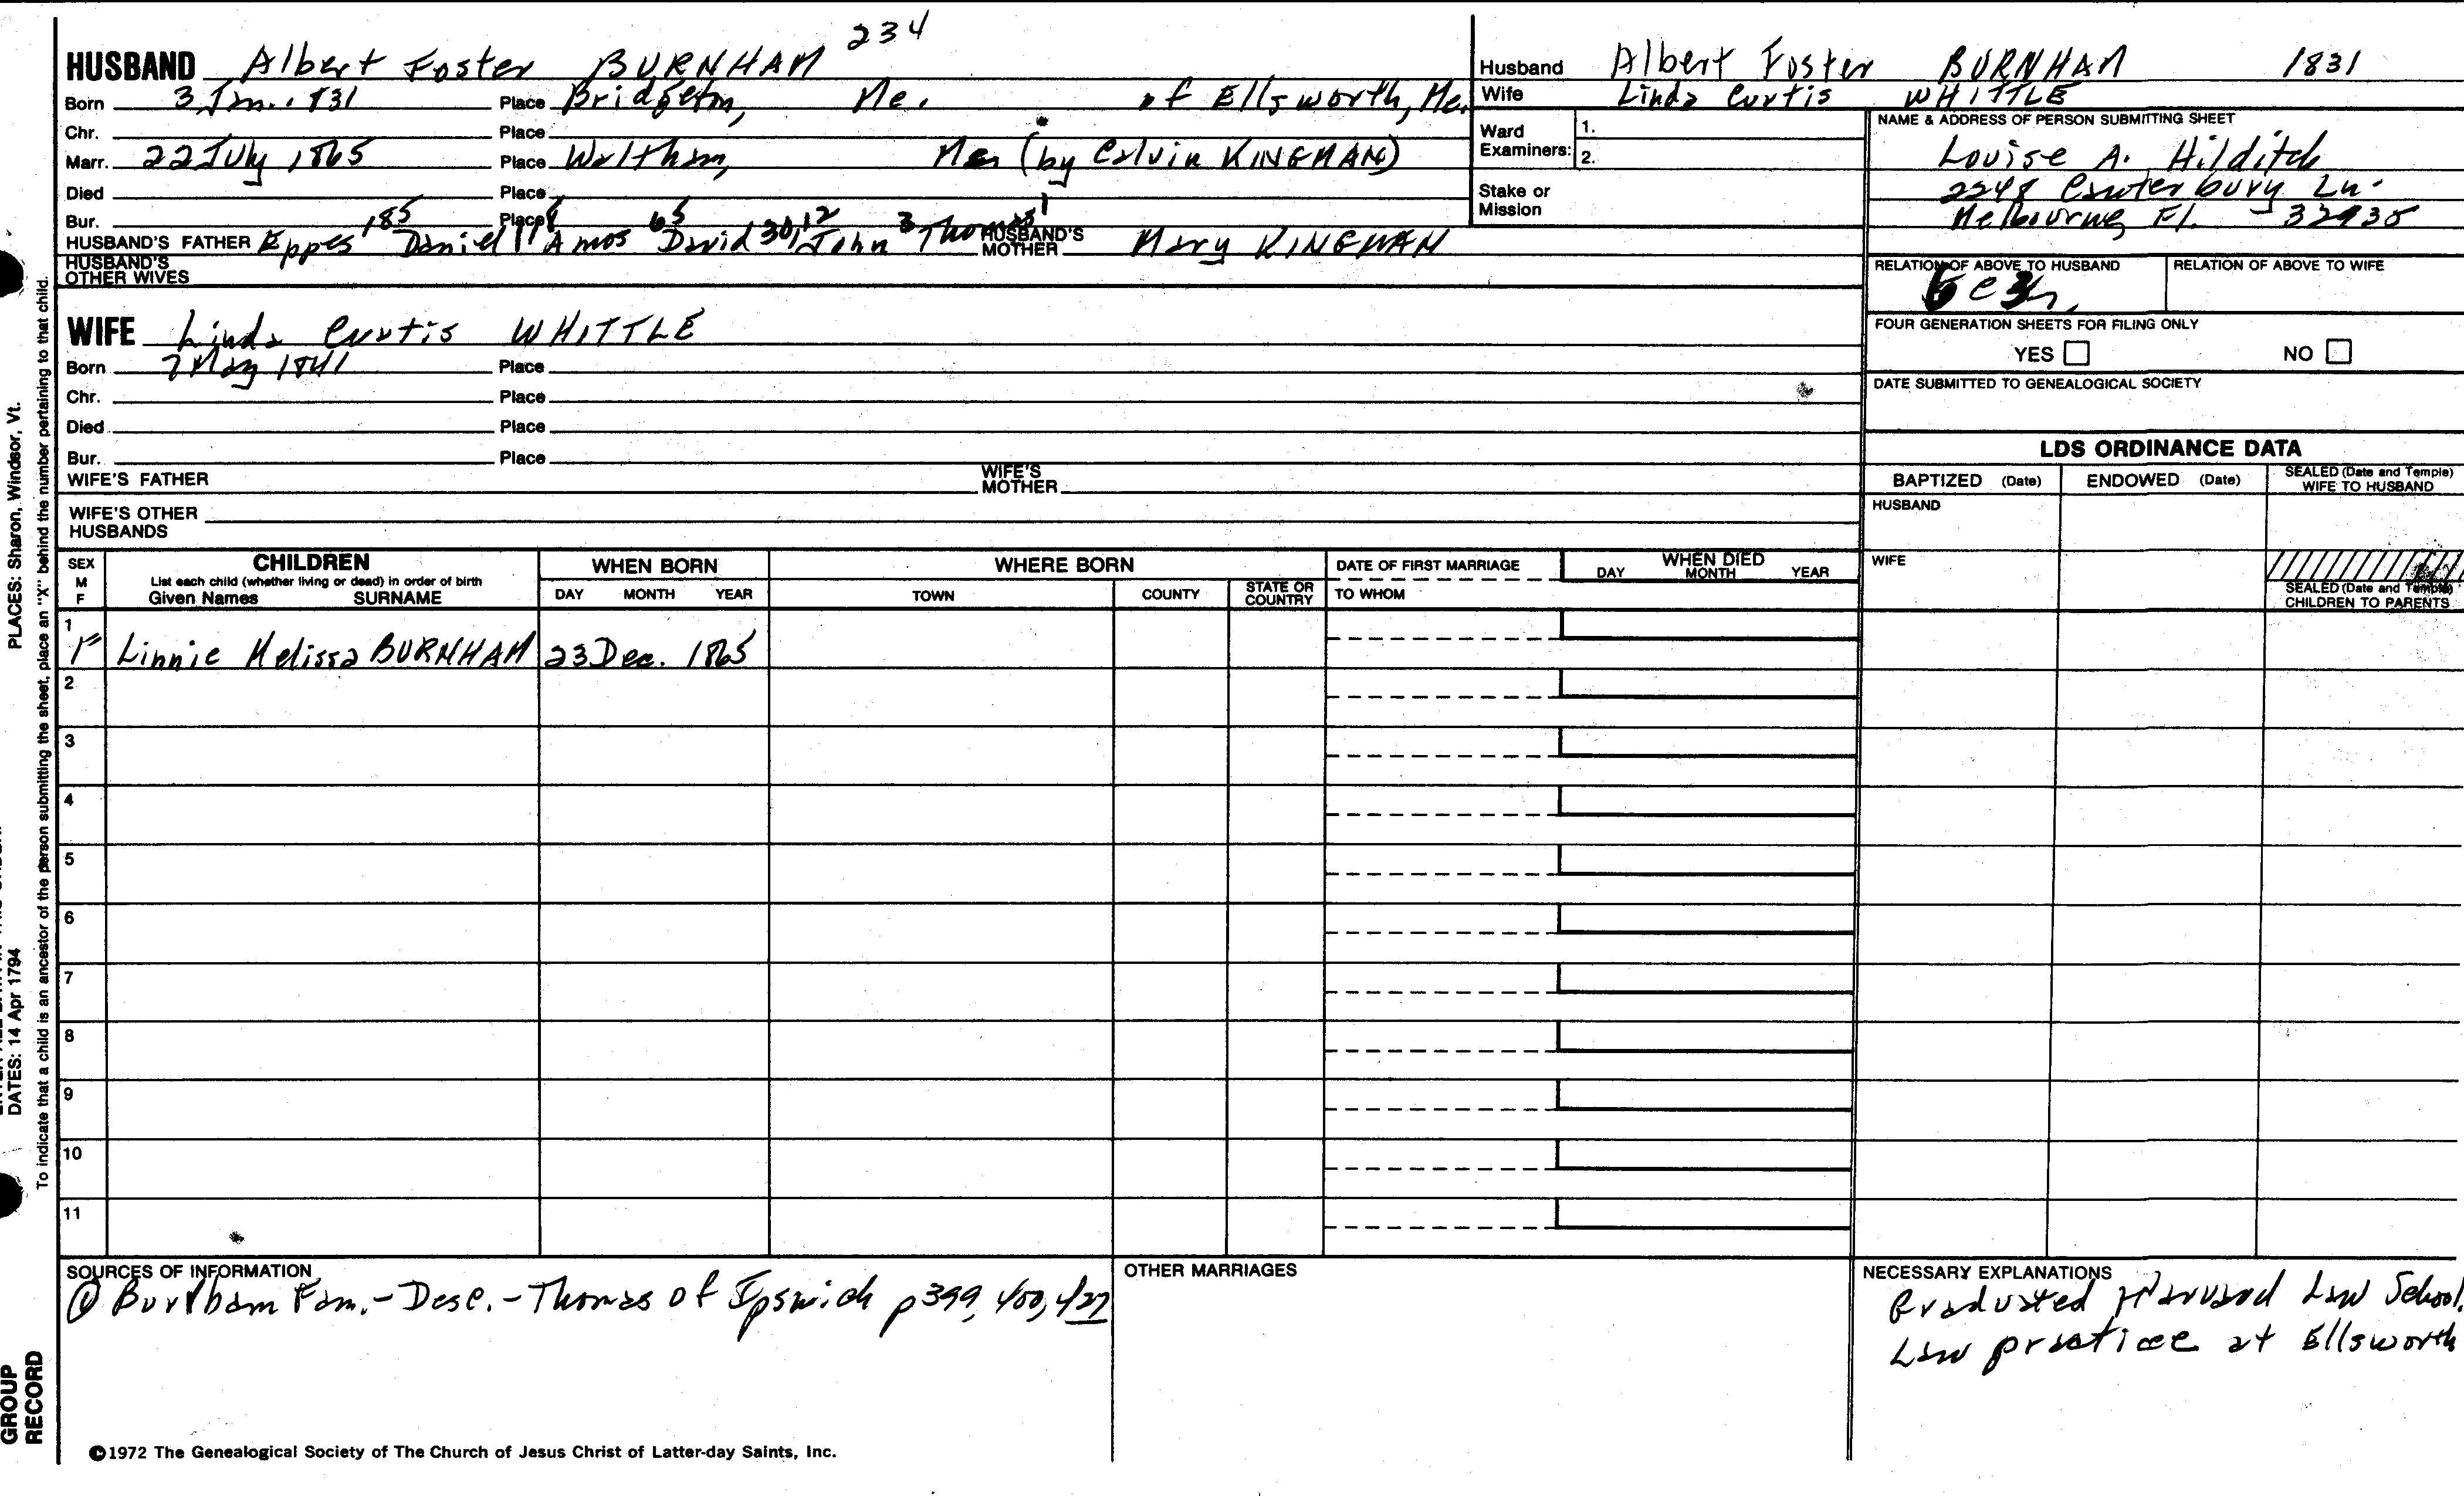 234
HUSBAND Albert Foster BURNHAM
Born 3 Jan. 1831 Place Bridgeton, Me. of Ellsworth, Me.
Chr. Place
Marr. 22 July 1865 Place Waltham, Me. (by Calvin KINGMAN)
Died Place
Bur. Place
185 65 30, 12 3 1
HUSBAND'S FATHER Eppes Daniel Amos David John Thomas HUSBAND'S MOTHER Mary KINGMAN
HUSBAND'S OTHER WIVES
WIFE Linda Curtis WHITTLE
Born 7 May 1841 Place
Chr. Place
Died Place
Bur. Place
WIFE'S FATHER WIFE'S MOTHER
WIFE'S OTHER HUSBANDS
Husband Albert Foster BURNHAM 1831
Wife Linda Curtis WHITTLE
Ward Examiners: 1.
2.
Stake or Mission
NAME & ADDRESS OF PERSON SUBMITTING SHEET
Louise A. Hilditch
2248 Canterbury Ln.
Melbourne, Fl. 32935
RELATION OF ABOVE TO HUSBAND RELATION OF ABOVE TO WIFE
FOUR GENERATION SHEETS FOR FILING ONLY
YES NO
DATE SUBMITTED TO GENEALOGICAL SOCIETY
LDS ORDINANCE DATA
BAPTIZED (Date) ENDOWED (Date) SEALED (Date and Temple) WIFE TO HUSBAND
HUSBAND
WIFE
SEALED (Date and Temple) CHILDREN TO PARENTS
SEX M F CHILDREN WHEN BORN WHERE BORN DATE OF FIRST MARRIAGE WHEN DIED
List each child (whether living or dead) in order of birth
Given Names SURNAME DAY MONTH YEAR TOWN COUNTY STATE OR COUNTRY TO WHOM DAY MONTH YEAR
1
F Linnie Melissa BURNHAM 23 Dec. 1865
2
3
4
5
6
7
8
9
10
11
SOURCES OF INFORMATION
① Burnham Fam. - Desc. - Thomas of Ipswich p 399, 400, 427
OTHER MARRIAGES
NECESSARY EXPLANATIONS
Graduated Harvard Law School,
Law practice at Ellsworth
©1972 The Genealogical Society of The Church of Jesus Christ of Latter-day Saints, Inc.
PLACES: Sharon, Windsor, Vt.
DATES: 14 Apr 1794
To indicate that a child is an ancestor of the person submitting the sheet, place an "X" behind the number pertaining to that child.
GROUP
RECORD